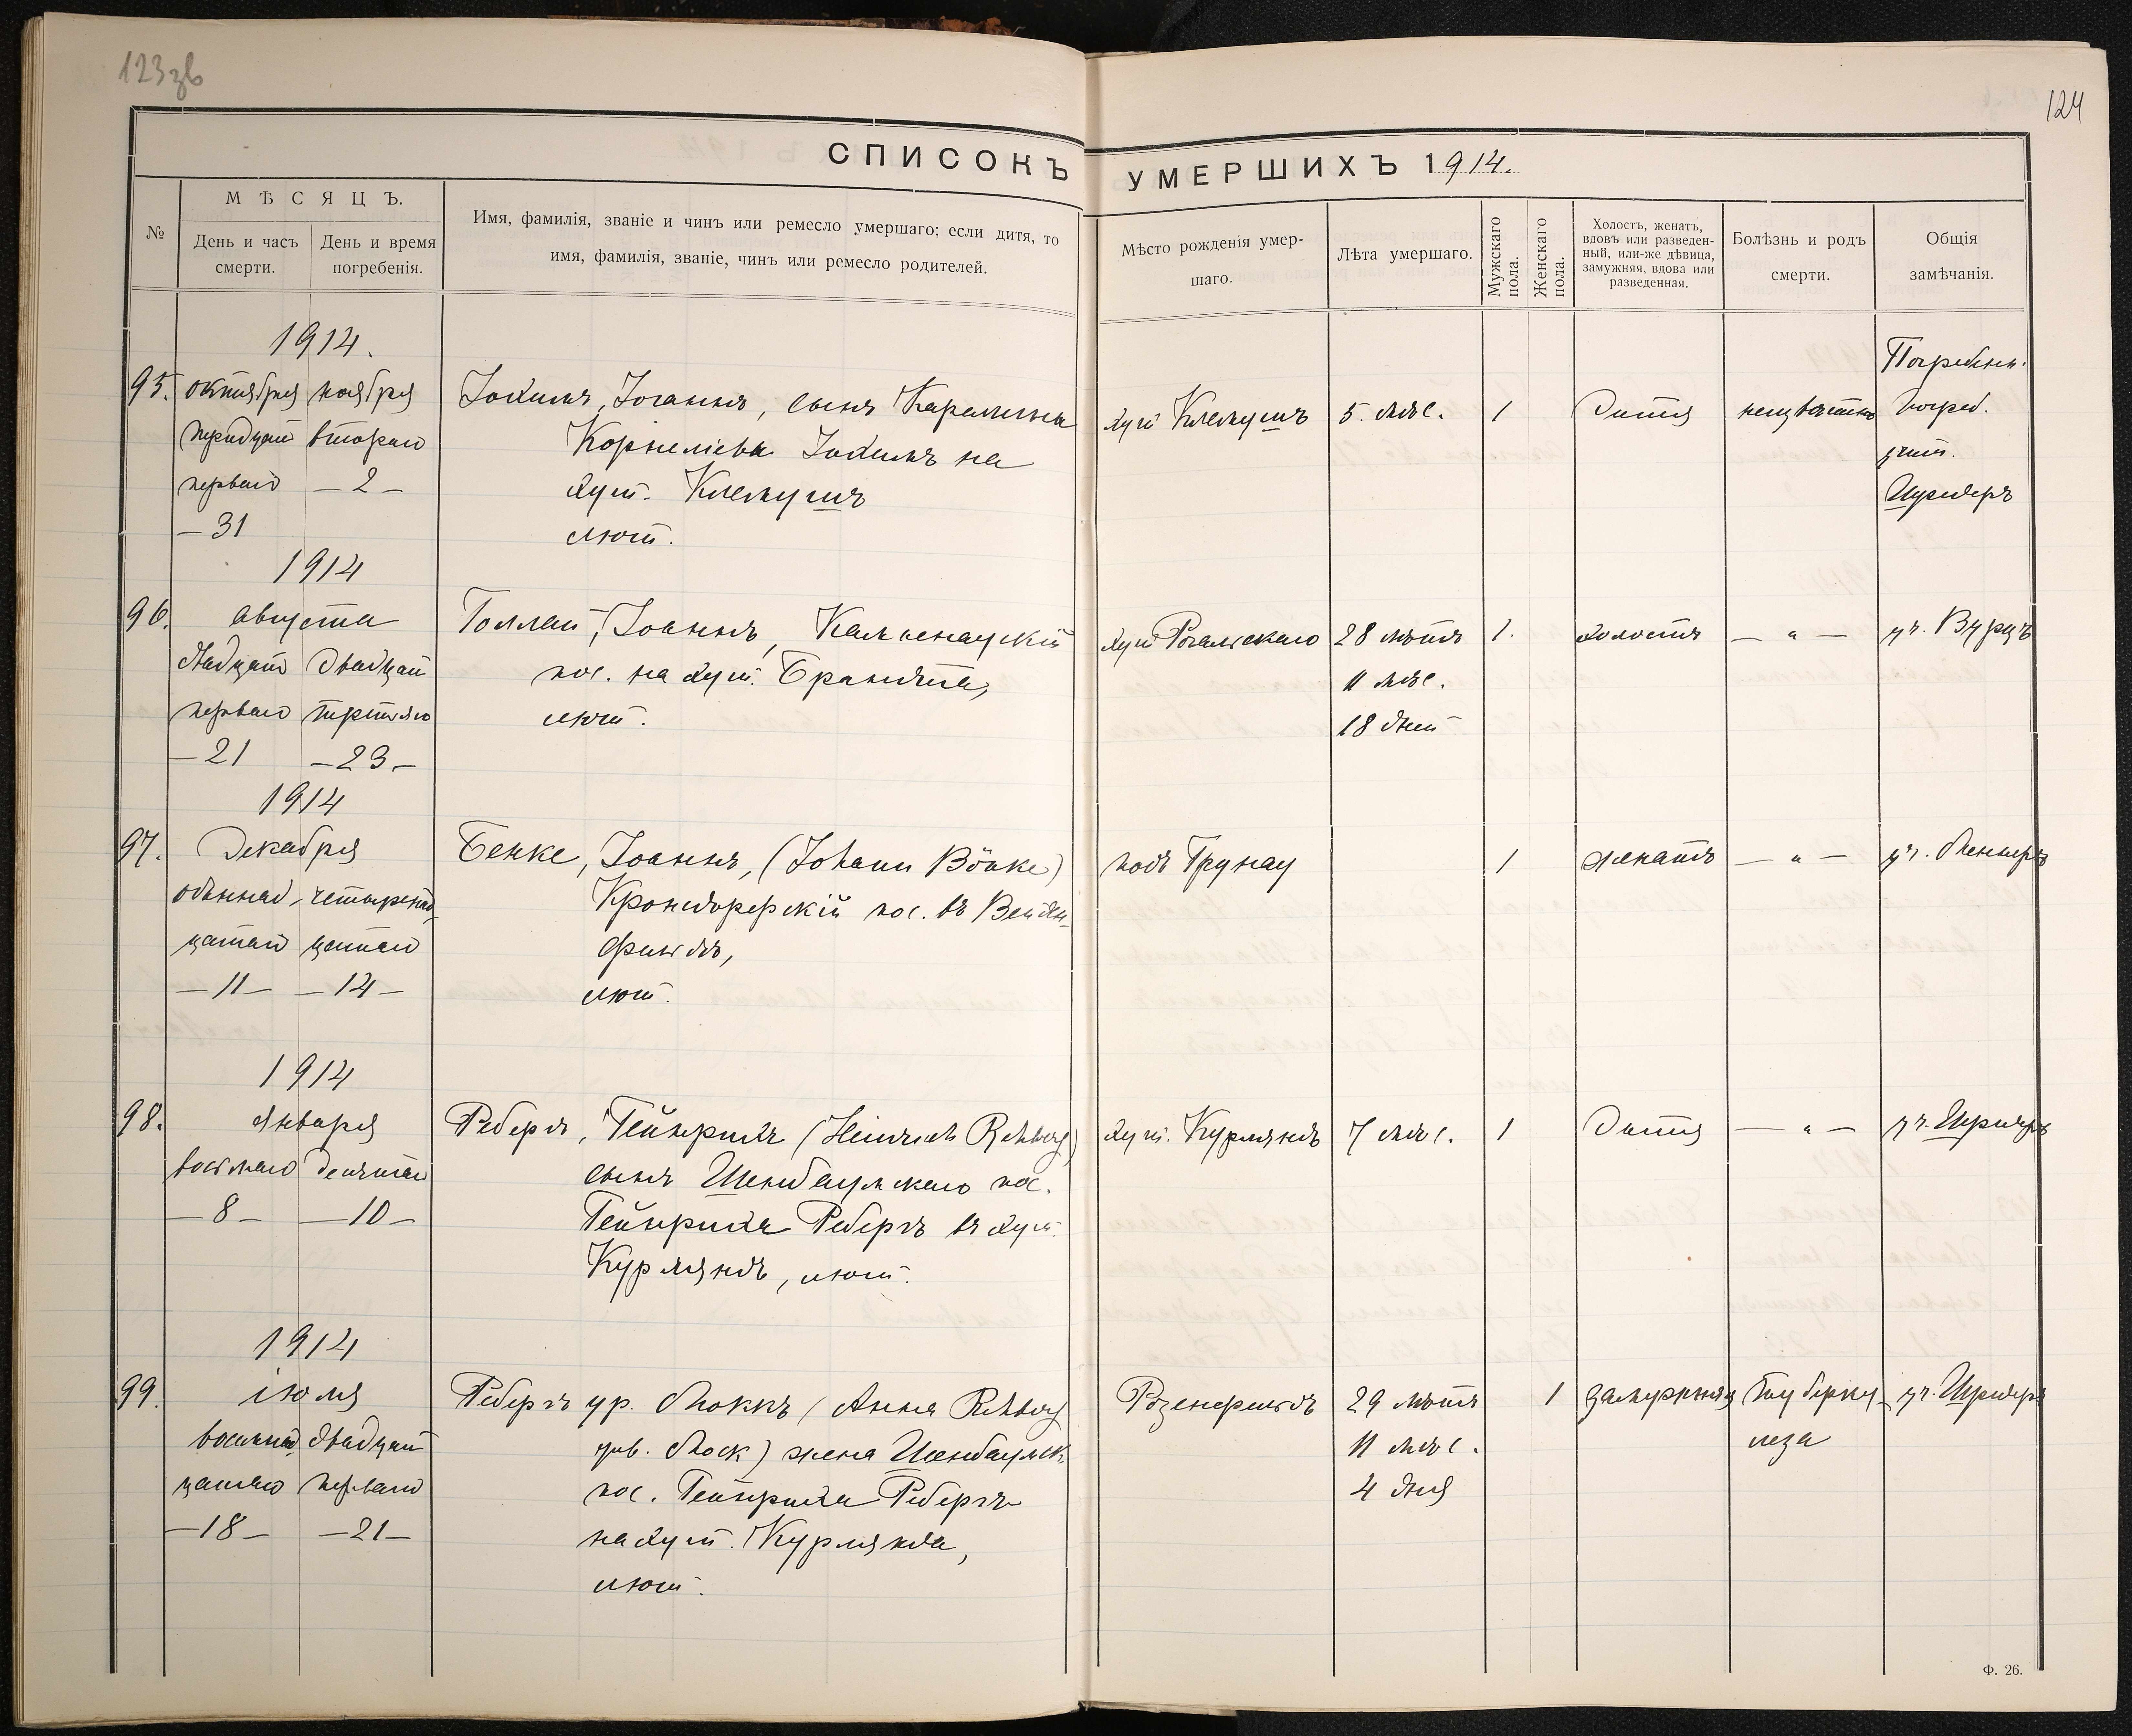 123зв
124
СПИСОКЪ УМЕРШИХЪ 1914.
№
МѢСЯЦЪ.
День и часъ смерти.
День и время погребенія.
Имя, фамилія, званіе и чинъ или ремесло умершаго; если дитя, то
имя, фамилія, званіе, чинъ или ремесло родителей.
Мѣсто рожденія умер-
шаго.
Лѣта умершаго.
Мужскаго пола.
Женскаго пола.
Холостъ, женатъ,
вдовъ или разведен-
ный, или-же дѣвица,
замужняя, вдова или
разведенная.
Болѣзнь и родъ
смерти.
Общія
замѣчанія.
1914.
95.
октября
перваго
— 31
ноября
второго
— 2 —
Іохимъ, Іоганнъ, сынъ
Корнеліева Іохимъ на
хут.
лют.
хут.
5. мѣс.
1
Дитя
неизвѣстно
погреб.
учит.
Шрейеръ
1914
96.
августа
двадцать
перваго
— 21
двадцать
третьяго
— 23 —
Іоаннъ,
пос. на хут. Брандта,
лют.
хут.
28 лѣтъ
11 мѣс.
18 дней
1.
холостъ
— „ —
уч. Вурцъ
1914
97.
Декабря
одиннад-
цатаго
— 11 —
четырнад-
цатаго
— 14 —
Бенке, Іоаннъ, (Johann Bönke)
Кронсдорфскій пос. въ Вейден-
фельдѣ,
лют.
кол. Грунау
1
женатъ
— „ —
1914
98.
Января
восьмаго
— 8 —
десятаго
— 10 —
Ребергъ, Гейнрихъ (Heinrich Rehberg)
сынъ Шенбаумскаго пос.
Гейнриха Ребергъ въ хут.
Курляндъ, лют.
хут. Курляндъ
7 мѣс.
1
Дитя
— „ —
уч. Шрейеръ
1914
99.
іюля
восемнад
цатаго
— 18 —
двадцать
перваго
— 21 —
Ребергъ ур. Моккъ (Анна Rehberg
geb. Mock) жена Шенбаумск.
пос. Гейнриха Ребергъ
на хут. Курлянда,
лют.
29 лѣтъ
11 мѣс.
4 дня
1
замужняя
туберку-
леза
уч. Шрейеръ
Ф. 26.